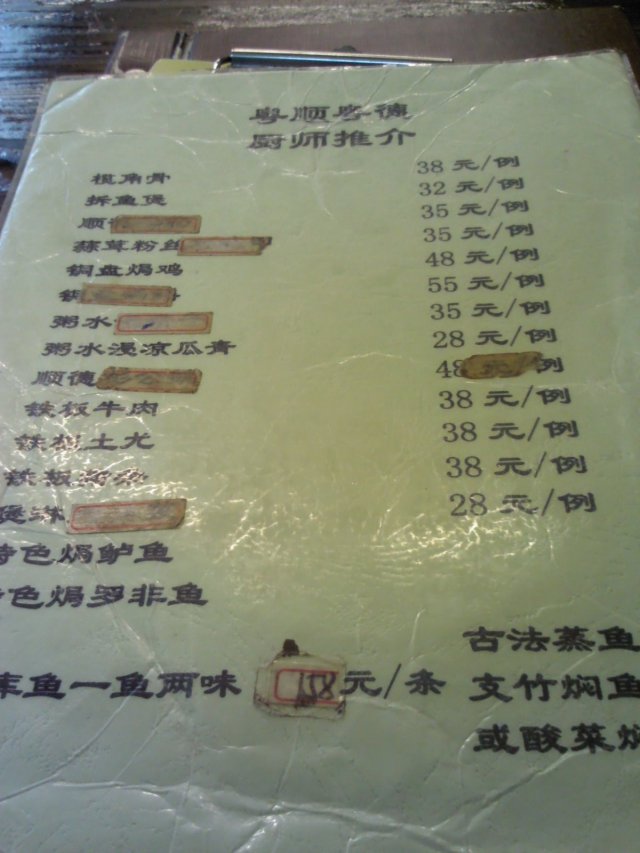 粤顺粤德
厨师推介
榄角骨 38 元/例
拆鱼煲 32 元/例
顺 35 元/例
蒜茸粉丝 35 元/例
铜盘焗鸡 48 元/例
铜 55 元/例
粥水 35 元/例
粥水浸凉瓜青 28 元/例
顺德 48 例
铁板牛肉 38 元/例
铁板土尤 38 元/例
铁板 38 元/例
煲 28 元/例
特色焗鲈鱼
色焗罗非鱼
古法蒸鱼
库鱼一鱼两味 158 元/条 支竹焖鱼
或酸菜焖